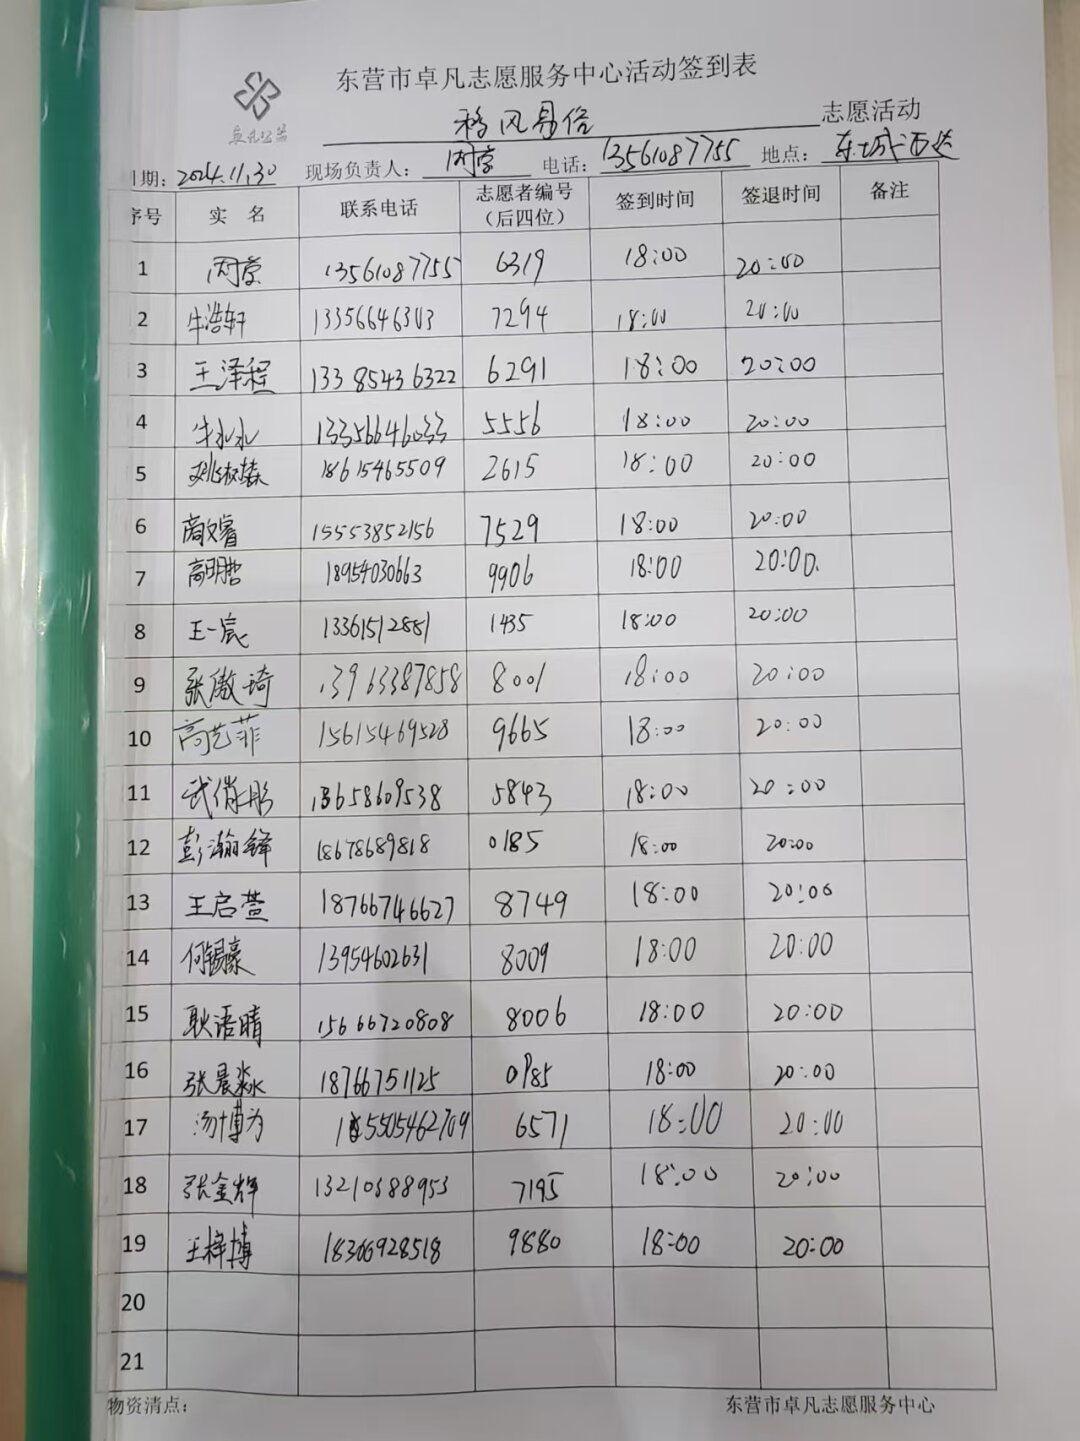 东营市卓凡志愿服务中心活动签到表
卓凡公益
移风易俗 志愿活动
日期: 2024.11.30 现场负责人: 丙京 电话: 13561087755 地点: 东城西
序号 实 名 联系电话 志愿者编号（后四位） 签到时间 签退时间 备注
1 丙京 13561087755 6319 18:00 20:00
2 牛浩轩 13356646303 7294 18:00 20:00
3 王泽程 13385436322 6291 18:00 20:00
4 牛水水 13356646033 5556 18:00 20:00
5 姚树臻 18615465509 2615 18:00 20:00
6 高文睿 15553852156 7529 18:00 20:00
7 高明哲 18954030663 9906 18:00 20:00
8 王一宸 13361512881 1435 18:00 20:00
9 张傲琦 13963387858 8001 18:00 20:00
10 高艺菲 15615469528 9665 18:00 20:00
11 武脩彤 13658609538 5843 18:00 20:00
12 彭瀚锋 18678689818 0185 18:00 20:00
13 王启萱 18766746627 8749 18:00 20:00
14 何锡豪 13954602631 8009 18:00 20:00
15 耿语晴 15666720808 8006 18:00 20:00
16 张晨淼 18766751125 0985 18:00 20:00
17 汤博为 15505462709 6571 18:00 20:00
18 张金辉 13210388953 7195 18:00 20:00
19 王梓博 18306928518 9880 18:00 20:00
20
21
物资清点: 东营市卓凡志愿服务中心